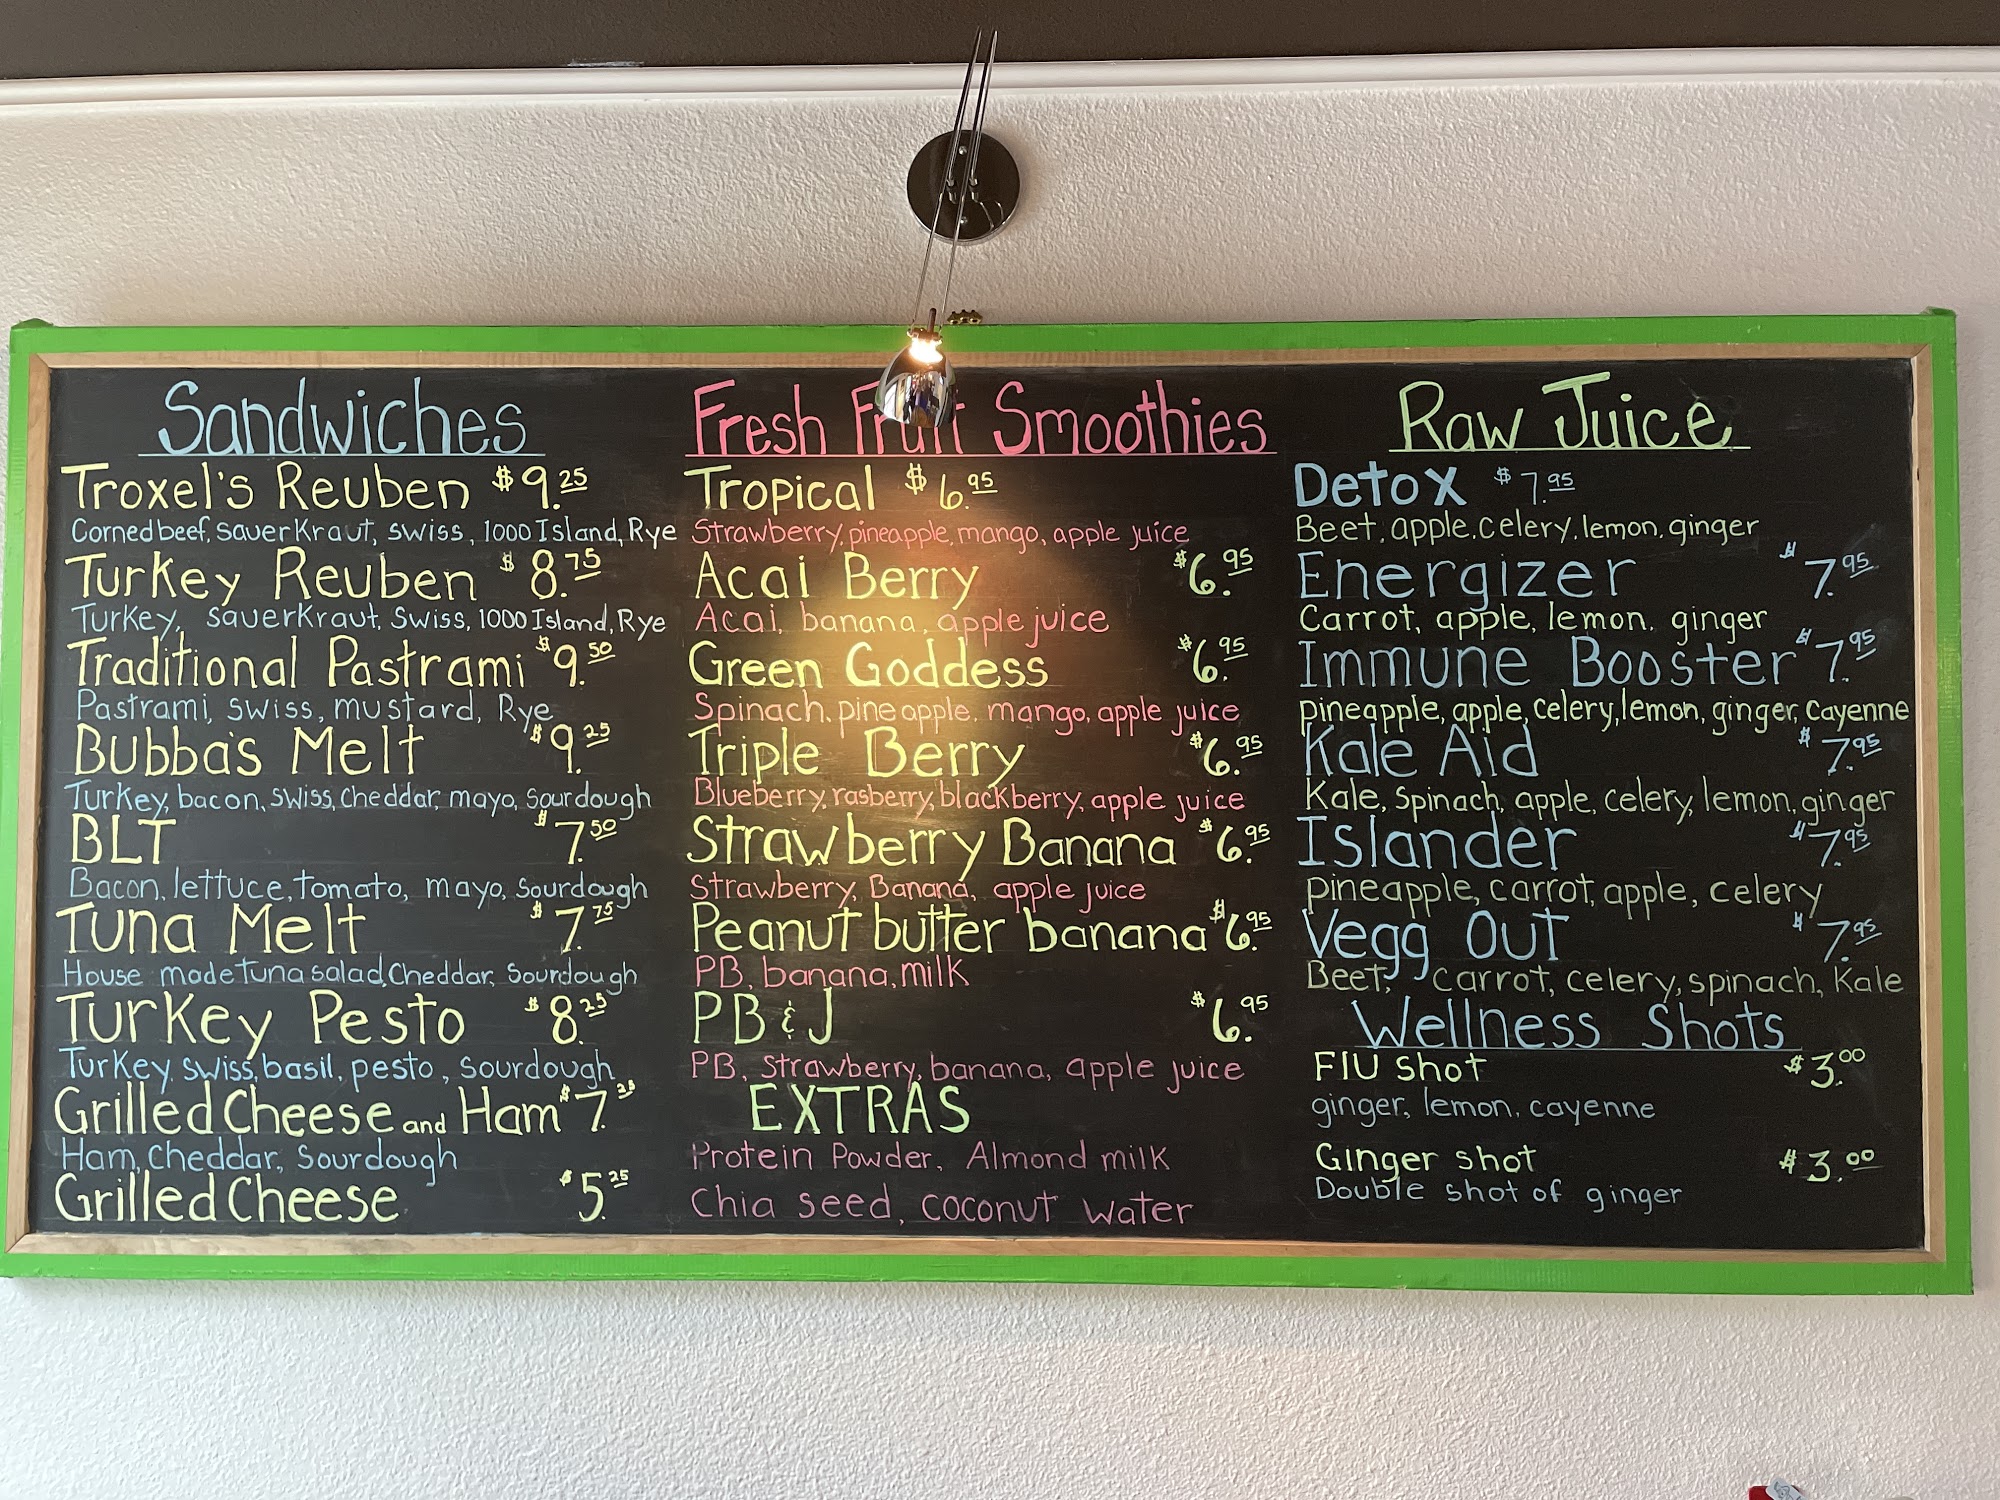 Sandwiches
Troxel's Reuben $9.25
Corned beef, Sauerkraut, Swiss, 1000 Island, Rye
Turkey Reuben $8.75
Turkey, Sauerkraut, Swiss, 1000 Island, Rye
Traditional Pastrami $9.50
Pastrami, Swiss, mustard, Rye
Bubba's Melt $9.25
Turkey, bacon, Swiss, Cheddar, mayo, Sourdough
BLT $7.50
Bacon, lettuce, tomato, mayo, Sourdough
Tuna Melt $7.75
House made tuna salad, Cheddar, Sourdough
Turkey Pesto $8.25
Turkey, Swiss, basil, pesto, Sourdough
Grilled Cheese and Ham $7.25
Ham, Cheddar, Sourdough
Grilled Cheese $5.25
Fresh Fruit Smoothies
Tropical $6.95
Strawberry, pineapple, mango, apple juice
Acai Berry $6.95
Acai, banana, apple juice
Green Goddess $6.95
Spinach, pineapple, mango, apple juice
Triple Berry $6.95
Blueberry, rasberry, blackberry, apple juice
Strawberry Banana $6.95
Strawberry, Banana, apple juice
Peanut butter banana $6.95
PB, banana, milk
PB & J $6.95
PB, Strawberry, banana, apple juice
EXTRAS
Protein Powder, Almond milk
Chia seed, coconut water
Raw Juice
Detox $7.95
Beet, apple, celery, lemon, ginger
Energizer $7.95
Carrot, apple, lemon, ginger
Immune Booster $7.95
pineapple, apple, celery, lemon, ginger, cayenne
Kale Aid $7.95
Kale, Spinach, apple, celery, lemon, ginger
Islander $7.95
pineapple, carrot, apple, celery
Vegg Out $7.95
Beet, carrot, celery, spinach, Kale
Wellness Shots
FIU shot $3.00
ginger, lemon, cayenne
Ginger shot $3.00
Double shot of ginger